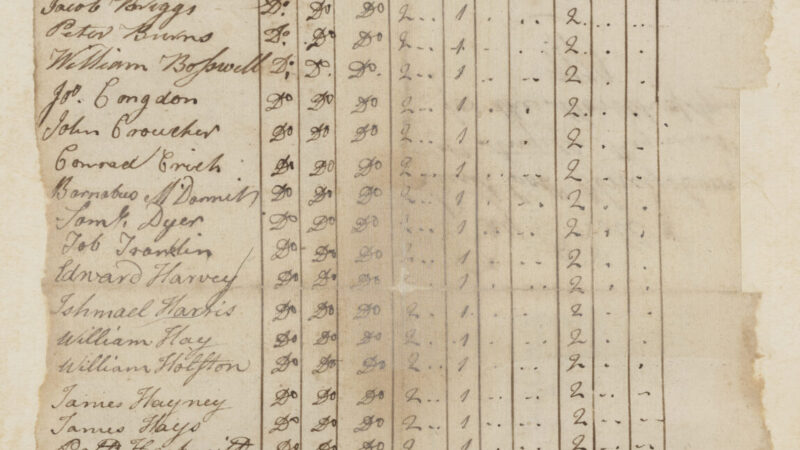 Jacob Briggs Do Do Do 2 .. 1 .. .. 2 .. ..
Peter Burns Do Do Do 2 .. 1 .. .. 2 . .
William Boswell Do Do Do. 2 .. 1 .. .. 2 . .
Jos. Congdon Do Do Do 2 .. 1 .. .. 2 .. ..
John Croucher Do Do Do 2 .. 1 .. .. 2 . .
Conrad Do Do Do 2 .. 1 .. .. 2 . .
Barnabus Do Do Do 2 .. 1 .. .. 2 . .
Saml. Dyer Do Do Do 2 .. 1 .. .. 2 . .
Job Franklin Do Do Do 2 .. 1 .. .. 2 . .
Edward Harvey Do Do Do 2 .. 1 .. .. 2 . .
Ishmael Harris Do Do Do 2 .. 1 .. .. 2 .. ..
William Hay Do Do Do 2 .. 1 .. .. 2 .. ..
William Do Do Do 2 .. 1 .. .. 2 .. ..
James Hayney Do Do Do 2 .. 1 .. .. 2 .. ..
James Hays Do Do Do 2 .. 1 .. .. 2 .. ..
Do Do Do 2 .. 1 .. .. 2 .. ..